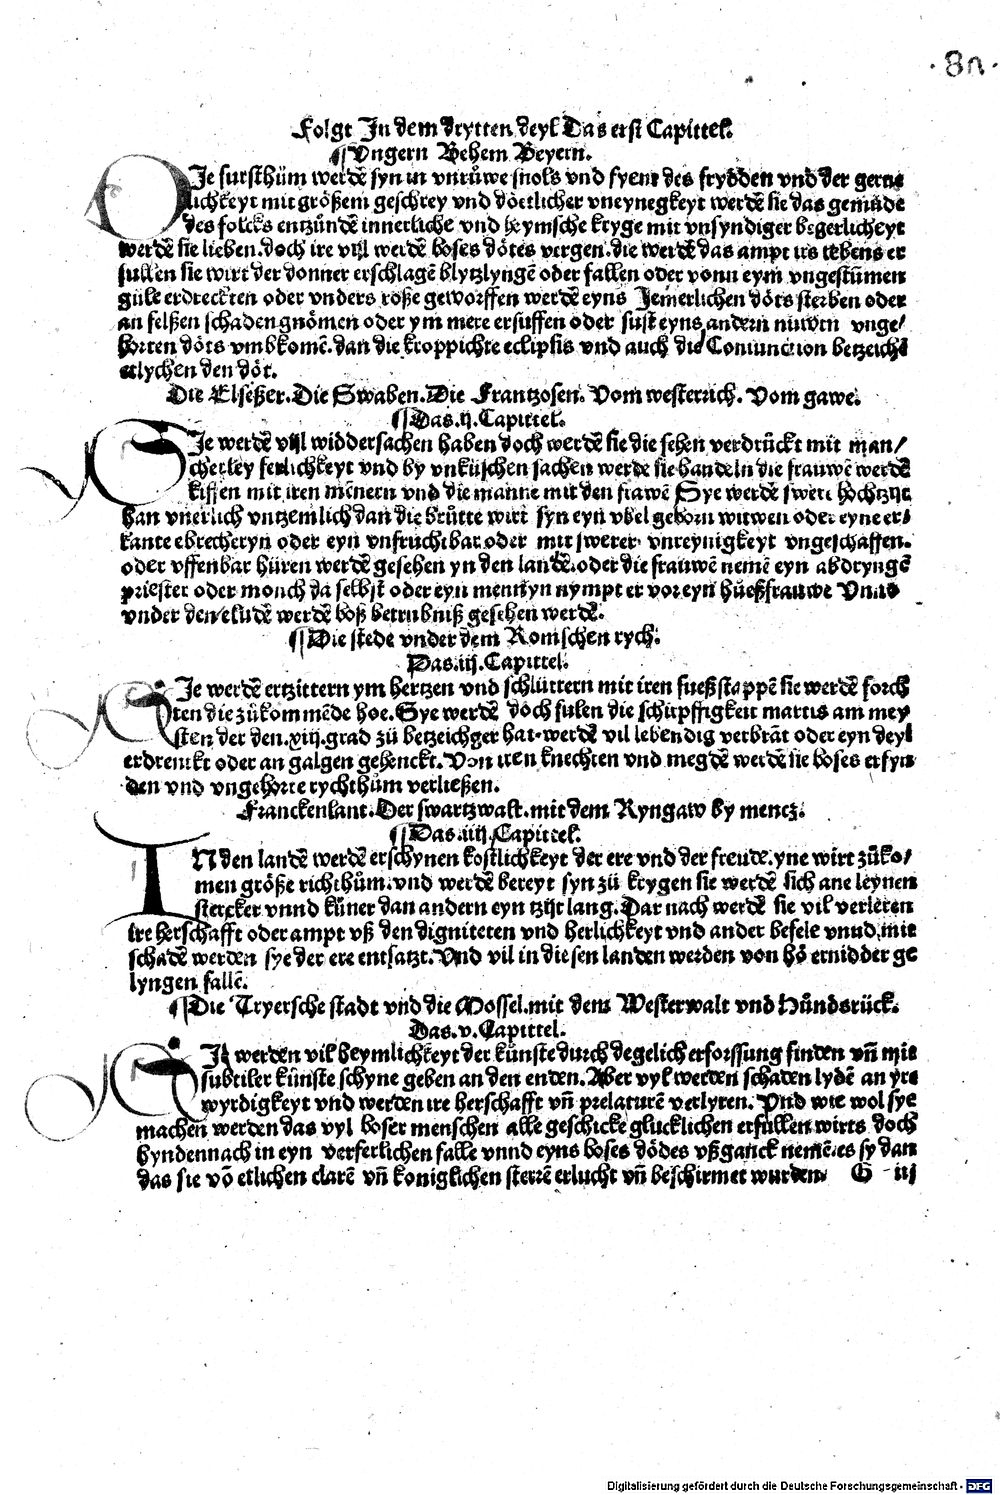 ·80·
Folgt In dem drytten deyl Das erst Capittel.
¶Vngern Behem Beyern.
DIe fursthüm werdē syn in vnrüwe snols vnd fyent des frydden vnd der gerne
lichkeyt mit größem geschrey vnd döetlicher vneynegkeyt werdē sie das gemüde
des folcks entzündē innerliche vnd heymsche kryge mit vnsyndiger begerlicheyt
werdē sie lieben. doch ire vijl werdē boses dötes vergen. die werdē das ampt irs lebens er
fullen sie wirt der donner erschlagē blytzlyngē oder fallen oder vonn eym vngestümen
güle erdreckten oder vnders röße geworffen werdē eyns Jemerlichen döts sterben oder
an felßen schaden gnömen oder ym mere ersuffen oder sust eyns andern nuwen vnge/
horten döts vmbkomē. dan die kroppichte eclipsis vnd auch die Coniunction betzeichē
etlychen den döt.
Die Elseßer. Die Swaben. Die Frantzosen. Vom westerrich. Vom gawe.
¶Das .ij. Capittel.
SIe werdē vijl widdersachen haben doch werdē sie die sehen verdrückt mit man/
cherley ferlichkeyt vnd by vnküschen sachen werde sie handeln die frauwē werdē
kiffen mit iren mēnern vnd die manne mit den frawē Sye werdē swere hochtzijt
han vnerlich vntzemlich dan die brütte wirt syn eyn vbel geborn witwen oder eyne er/
kante ebrecheryn oder eyn vnfruchtbar oder mit swerer vnreynigkeyt vngeschaffen.
oder vffenbar hüren werdē gesehen yn den landē. oder die frauwē nemē eyn abdryngē
priester oder monch da selbst oder eyn mennyn nympt er vor eyn hüeßfrauwe Vnnd
vnder den elüdē werdē boß betrubniß gesehen werdē.
¶Die stede vnder dem Romschen rych.
Das .iij. Capittel.
SIe werdē ertzittern ym hertzen vnd schlüttern mit iren fueßstappē sie werdē forch
ten die zükommēde hoe. Sye werdē doch fulen die schirpffigkeit martis am mey
sten der den .xiij. grad zü betzeichger hat. werdē vil lebendig verbrāt oder eyn deyl
erdrenckt oder an galgen gehenckt. Von iren knechten vnd megdē werdē sie boses erfyn
den vnd vngehorte rychthüm verließen.
Franckenlant. Der swartzwalt. mit dem Ryngaw by mentz.
¶Das .iiij. Capittel.
IN den landē werdē erschynen kostlichkeyt der ere vnd der freude. yne wirt züko/
men größe richthům. vnd werdē bereyt syn zü krygen sie werdē sich ane leynen
stercker vnnd küner dan andern eyn tzijt lang. Dar nach werdē sie vil verleren
ire herschafft oder ampt vß den digniteten vnd herlichkeyt vnd ander befele vnnd mit
schadē werden sye der ere entsatzt. Vnd vil in diesen landen werden von hö ernidder ge
lyngen fallē.
¶Die Tryersche stadt vnd die Mossel. mit dem Westerwalt vnd Hůndsrück.
Das .v. Capittel.
SIe werden vil heymlichkeyt der künste durch degelich erforssung finden vn̄ mit
subtiler künste schyne geben an den enden. Aber vyl werden schaden lydē an yre
wyrdigkeyt vnd werden ire herschafft vn̄ prelaturē verlyren. Vnd wie wol sye
machen werden das vyl boser menschen alle geschicke glucklichen erfüllen wirts doch
hyndennach in eyn verferlichen falle vnnd eyns boses dödes vßganck nemē. es sy dan
das sie vō etlichen clarē vn̄ koniglichen sterrē erlucht vn̄ beschirmet wurden. G iij
Digitalisierung gefördert durch die Deutsche Forschungsgemeinschaft - DFG